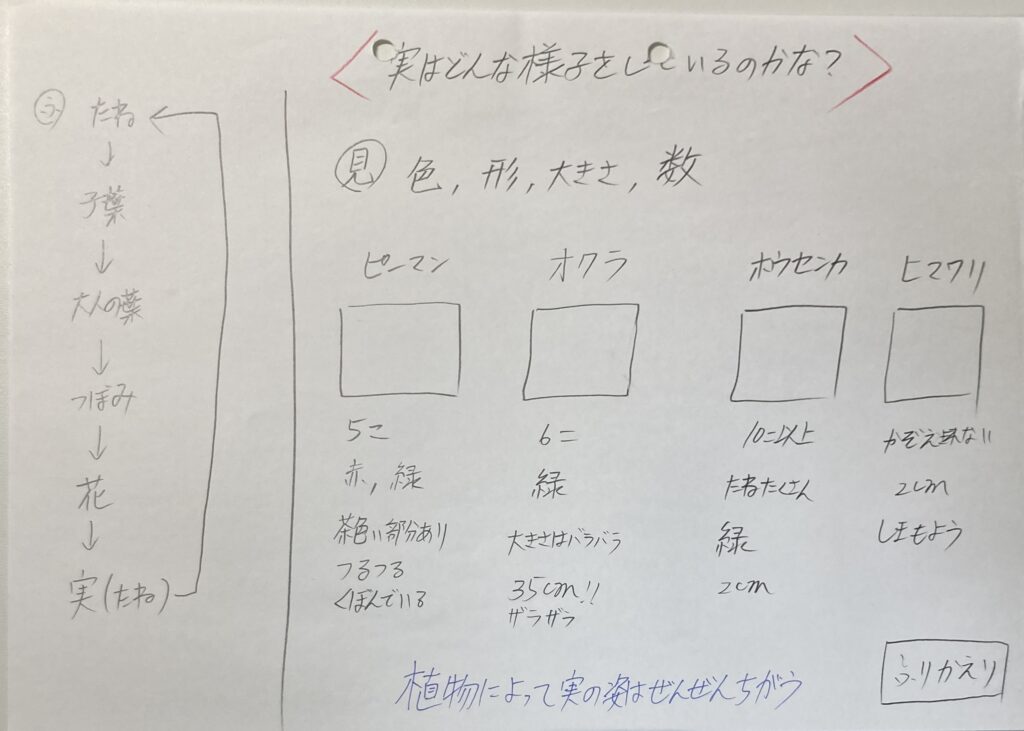 実はどんな様子をしているのかな?
ふ たね
↓
子葉
↓
大人の葉
↓
つぼみ
↓
花
↓
実(たね)
見 色,形,大きさ,数
ピーマン
5こ
赤,緑
茶色い部分あり
つるつる
くぼんでいる
オクラ
6こ
緑
大きさはバラバラ
35cm!!
ザラザラ
ホウセンカ
10こ以上
たねたくさん
緑
2cm
ヒマワリ
かぞえきれない
2cm
しまもよう
植物によって実の姿はぜんぜんちがう
ふりかえり